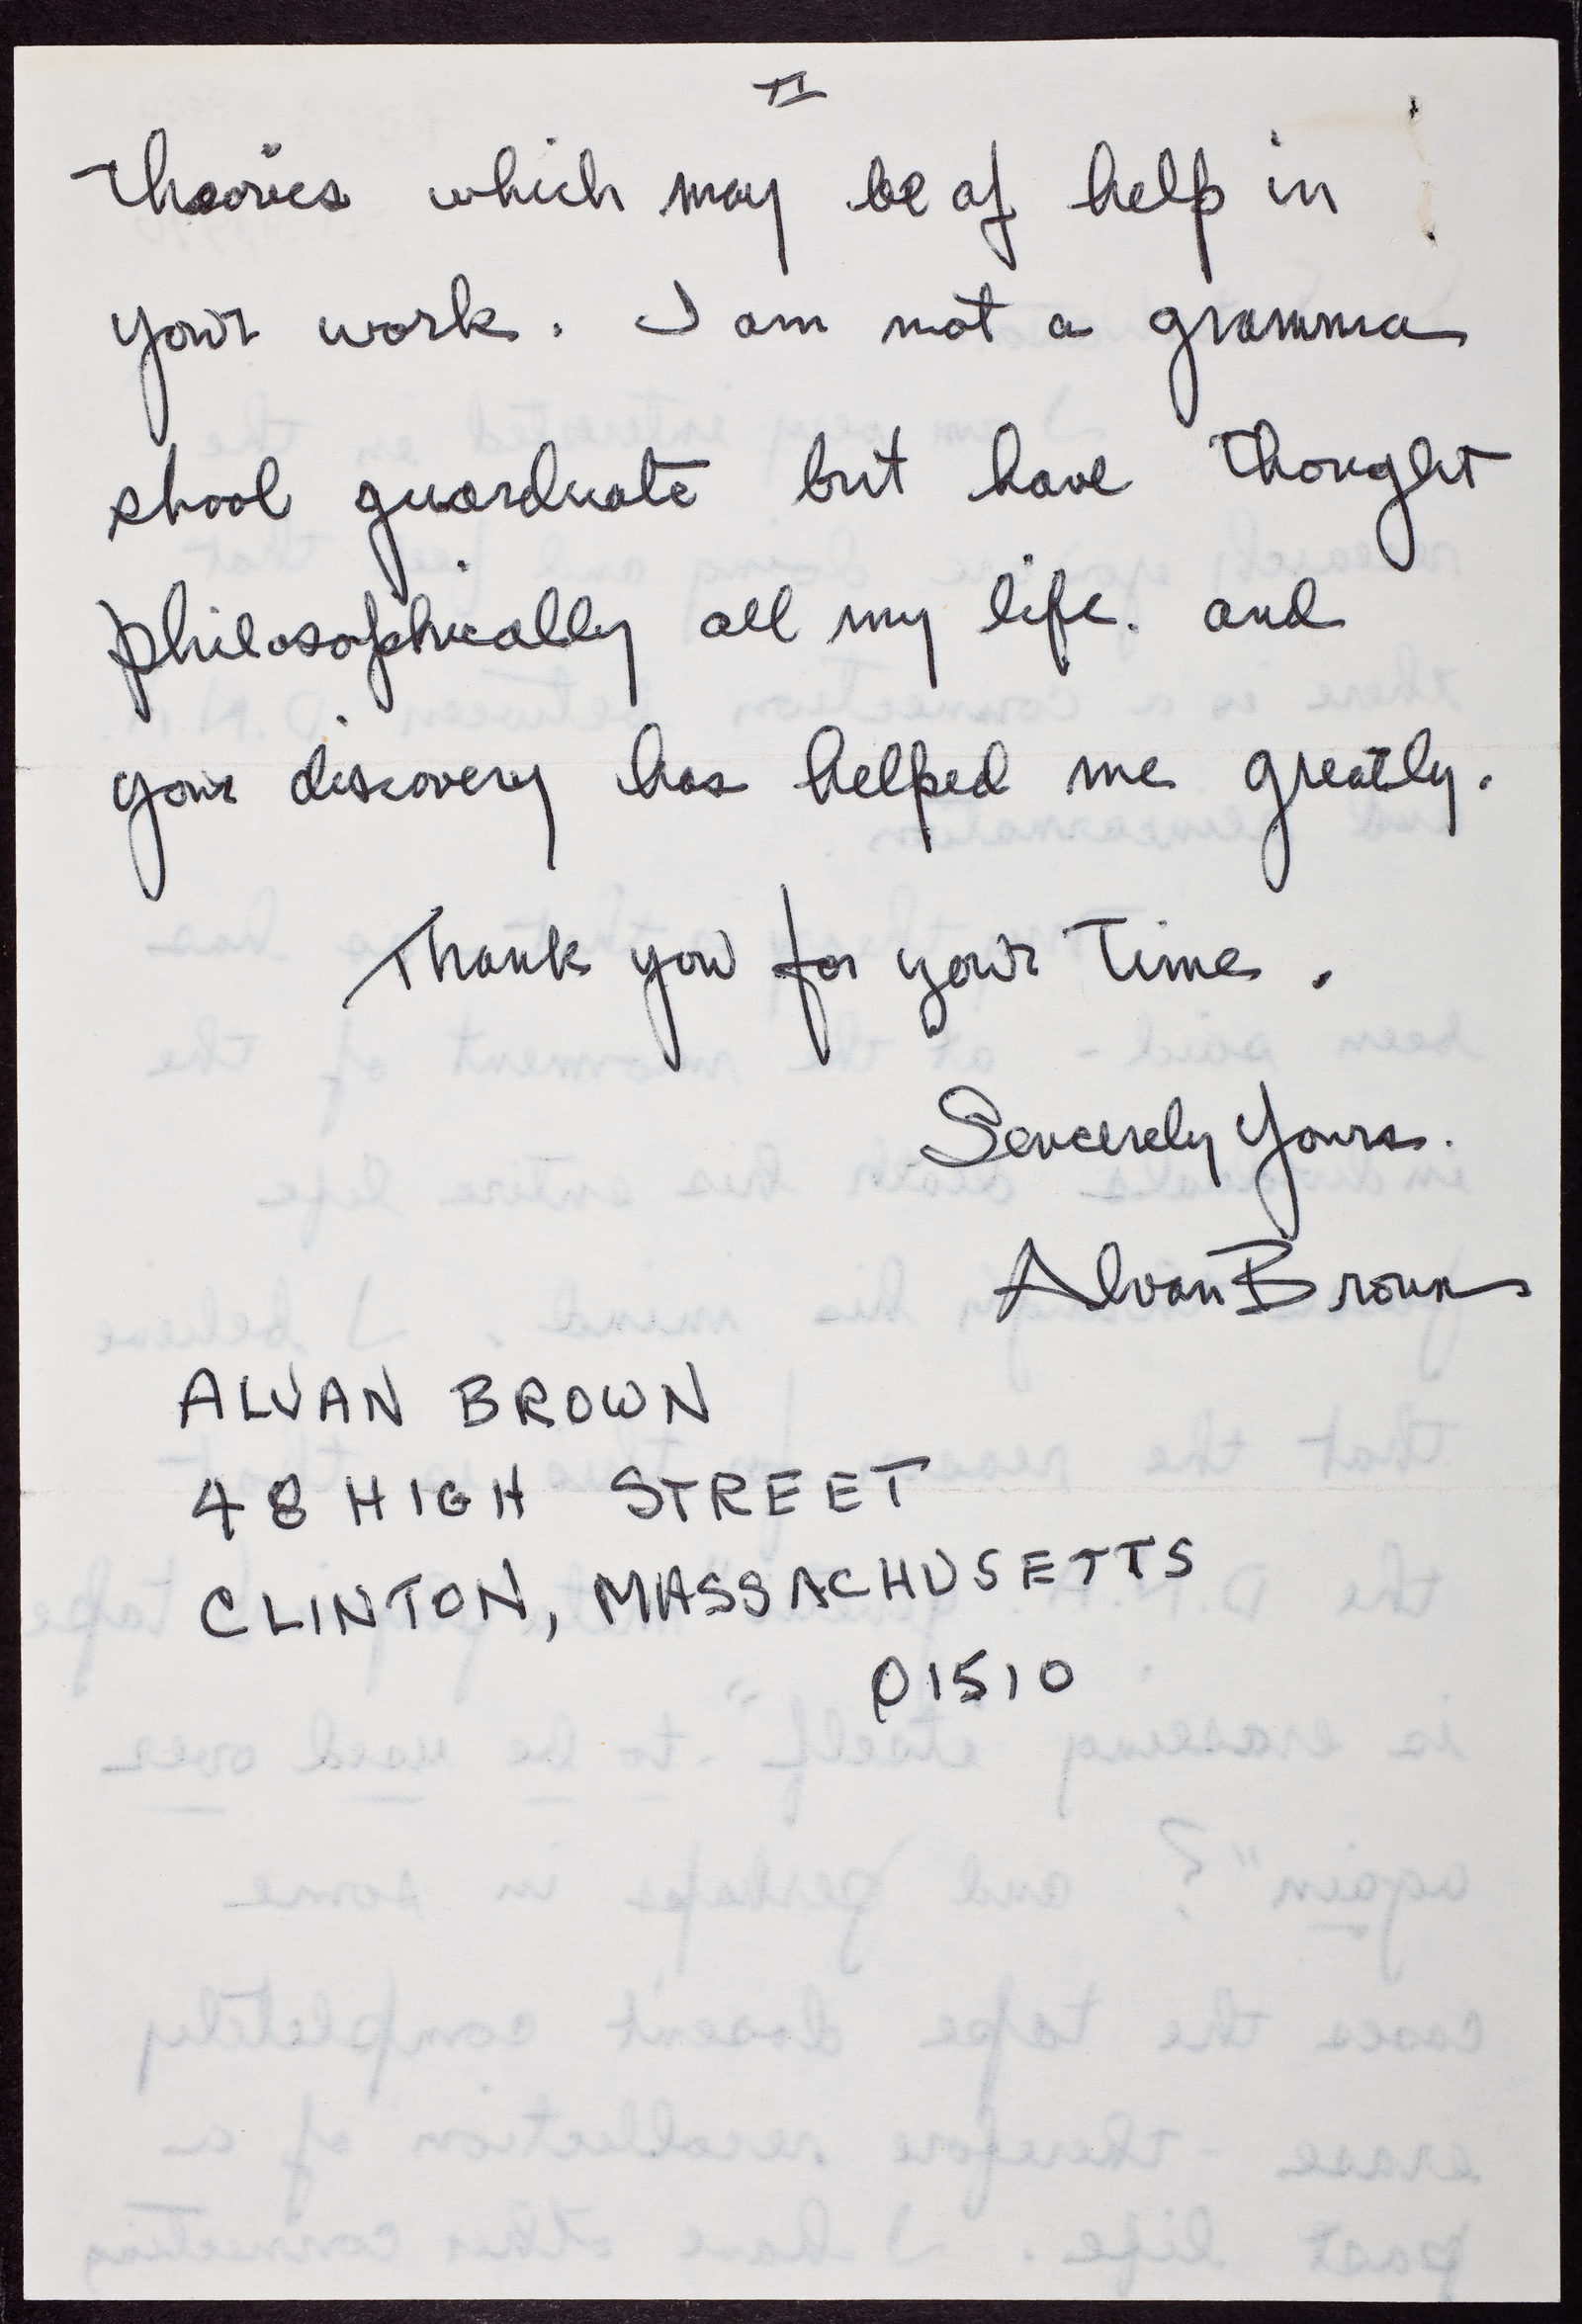 II
theories which may be of help in
your work. I am not a gramma
shool guarduate but have thought
philosophically all my life. and
your discovery has helped me greatly.
Thank you for your time.
Sincerely Yours.
Alvan Brown
ALVAN BROWN
48 HIGH STREET
CLINTON, MASSACHUSETTS
01510